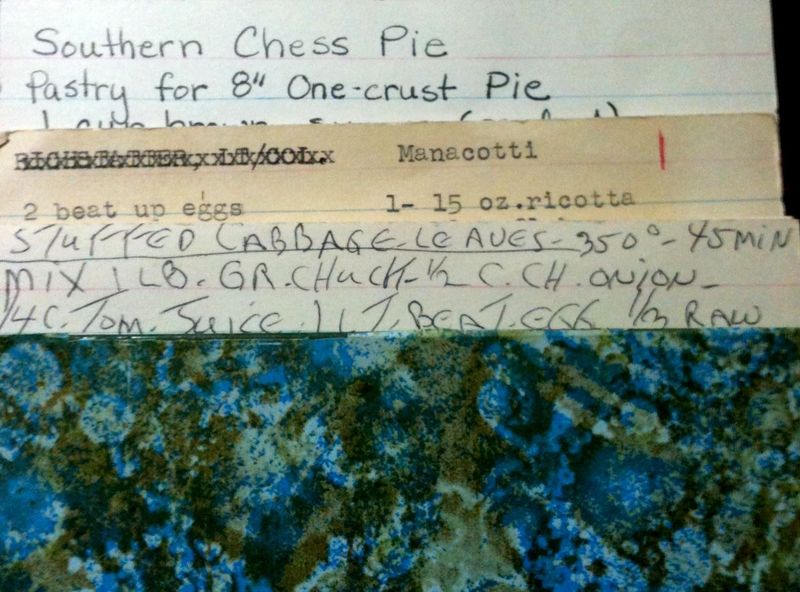 Southern Chess Pie
Pastry for 8" One-crust Pie
1 cup brown
Manacotti
2 beat up eggs 1- 15 oz.ricotta
STUFFED CABBAGE LEAVES- 350°- 45 MIN
MIX 1 LB. GR. CHUCK- 1/2 C. CH. ONION-
1/4 C. TOM. JUICE. 1 LT. BEAT. EGG 1/3 RAW